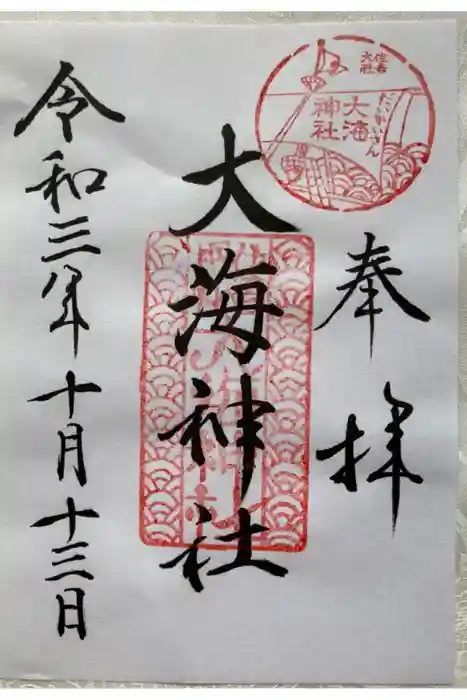 奉拝
住吉
大社
だいかいさん
大海
神社
大海神社
令和三年十月十三日